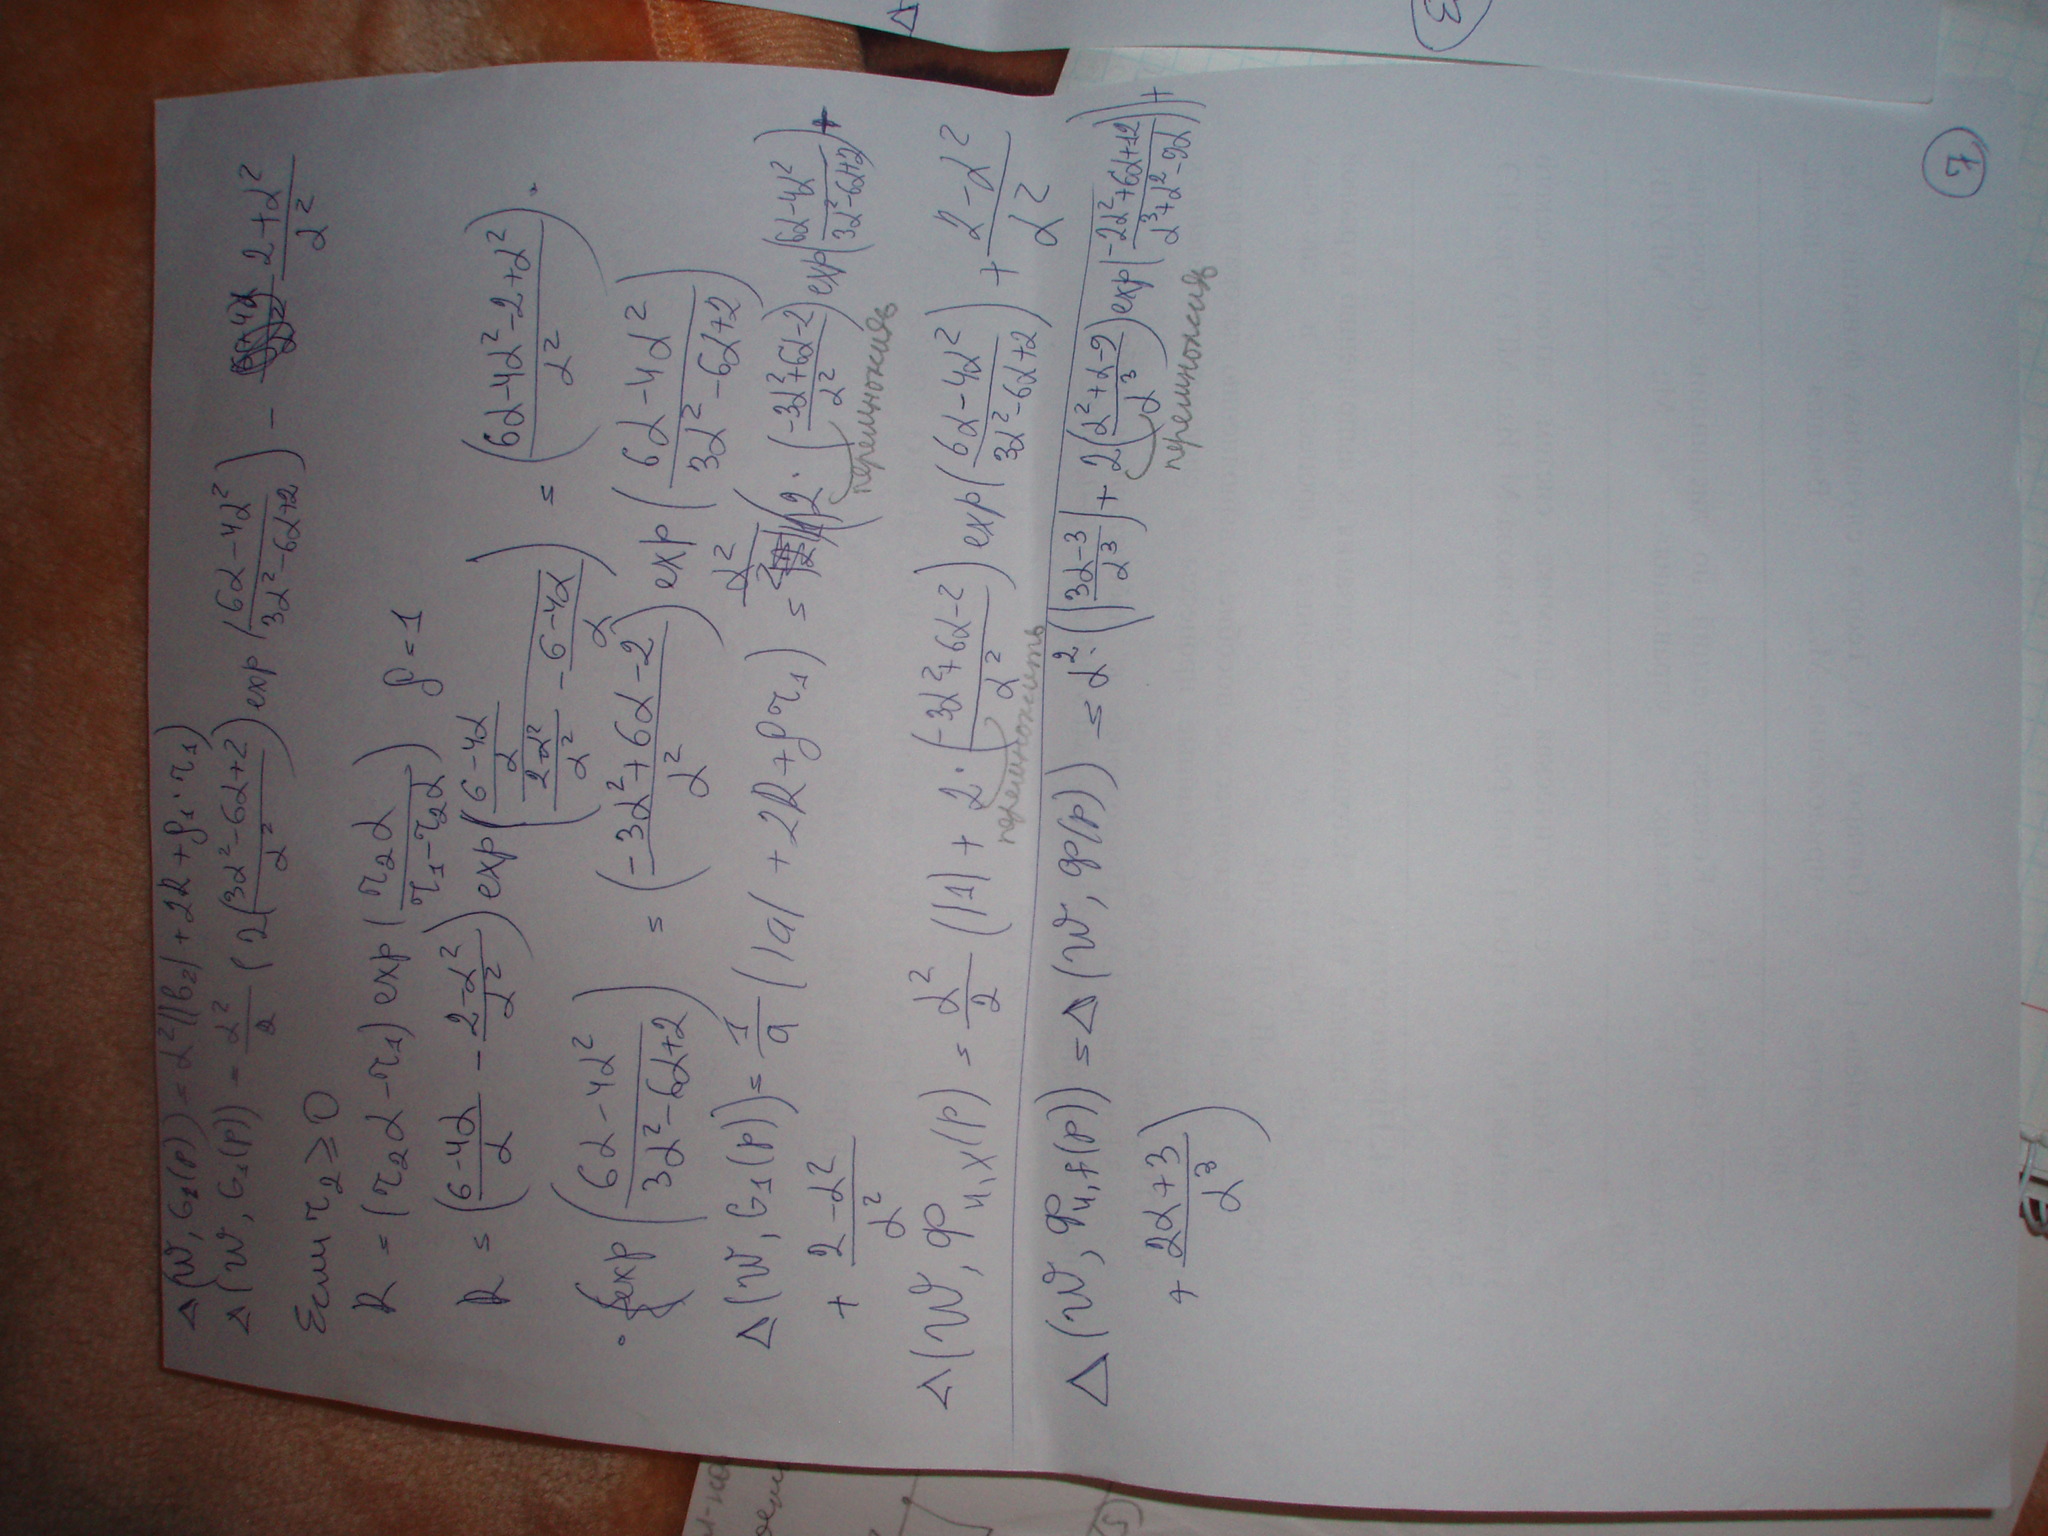 Δ(W, G₂(p)) = α²(|b₂| + 2R + ρ₁·r₁)
Δ(W, G₁(p)) = α²/2 (2((3α²-6α+2)/α²) exp((6α-4α²)/(3α²-6α+2)) - (2+α²)/α²
Если r₂ ≥ 0
R = (r₂α - r₁) exp(r₂α/(r₁-r₂α)) ρ = 1
R = ((6-4α)/α - (2-α²)/α²) exp(((6-4α)/α)/((2-α²)/α² - (6-4α)/α)) = ((6α-4α²-2+α²)/α²) ·
· exp((6α-4α²)/(3α²-6α+2)) = ((-3α²+6α-2)/α²) exp((6α-4α²)/(3α²-6α+2))
Δ(W, G₁(p)) = 1/a (|a| + 2R + ρr₁) = α²/2 (2·((-3α²+6α-2)/α²) exp((6α-4α²)/(3α²-6α+2)) +
перемножив
+ (2-α²)/α²
Δ(W, Φ_{u,x}(p) = α²/2 (|1| + 2·((-3α²+6α-2)/α²) exp((6α-4α²)/(3α²-6α+2)) + (2-α²)/α²
перемножить
Δ(W, Φ_{u,f}(p)) = Δ(W, Φ(p)) = α²·(|(3α-3)/α³| + 2((α²+α-9)/α³) exp((-2α²+6α+12)/(α³+α²-9α)) +
перемножив
+ (2α+3)/α³)
7
3